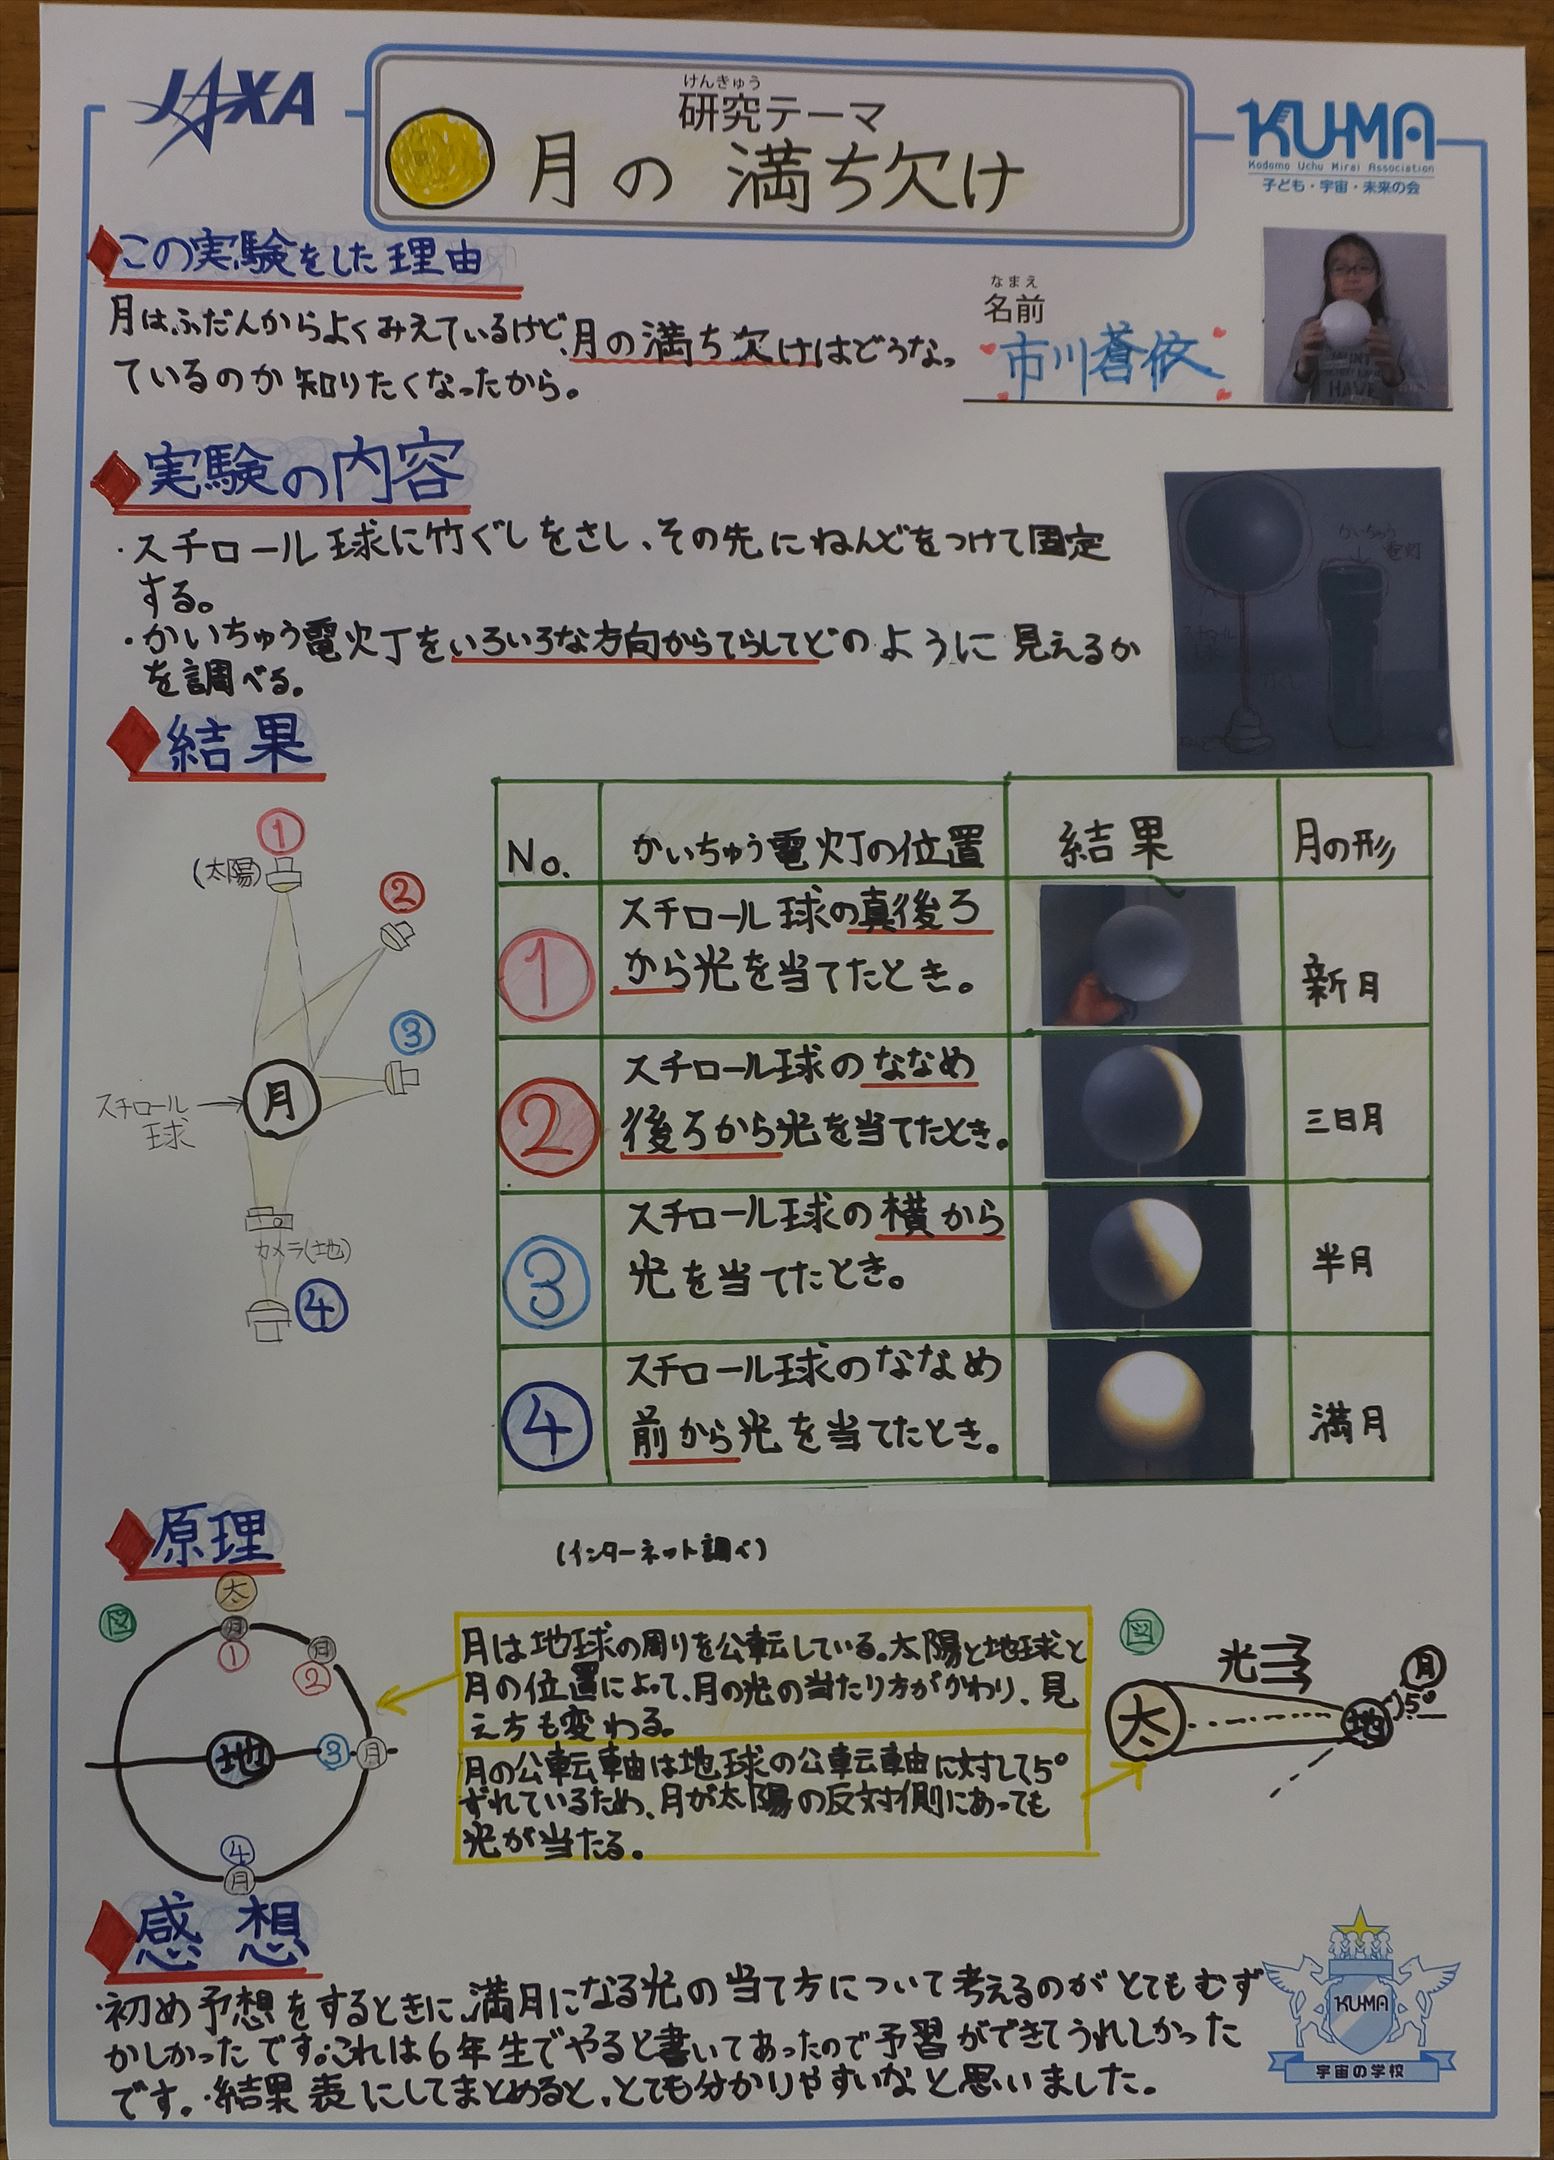 JAXA
けんきゅう
研究テーマ
月の 満ち欠け
KUMA
Kodomo Uchu Mirai Association
子ども・宇宙・未来の会
この実験をした理由
月は、ふだんからよくみえているけど、月の満ち欠けはどうなっ
ているのか知りたくなったから。
なまえ
名前
市川蒼依
実験の内容
・スチロール球に竹ぐしをさし、その先にねんどをつけて固定
する。
・かいちゅう電灯をいろいろな方向からてらしてどのように見えるか
を調べる。
かいちゅう
電灯
スチロール
球
ねんど
結果
①
(太陽)
②
③
スチロール
球
月
カメラ(地)
④
No.
かいちゅう電灯の位置
結果
月の形
①
スチロール球の真後ろ
から光を当てたとき。
新月
②
スチロール球のななめ
後ろから光を当てたとき。
三日月
③
スチロール球の横から
光を当てたとき。
半月
④
スチロール球のななめ
前から光を当てたとき。
満月
原理
(インターネット調べ)
図
太
月
①
月
②
地
③
月
④
月
月は地球の周りを公転している。太陽と地球と
月の位置によって、月の光の当たり方がかわり、見
え方も変わる。
月の公転軸は地球の公転軸に対して5°
ずれているため、月が太陽の反対側にあっても
光が当たる。
図
光
月
太
地
5°
感想
・初め予想をするときに、満月になる光の当て方について考えるのがとてもむず
かしかったです。これは6年生でやると書いてあったので予習ができてうれしかった
です。・結果表にしてまとめると、とても分かりやすいなと思いました。
KUMA
宇宙の学校